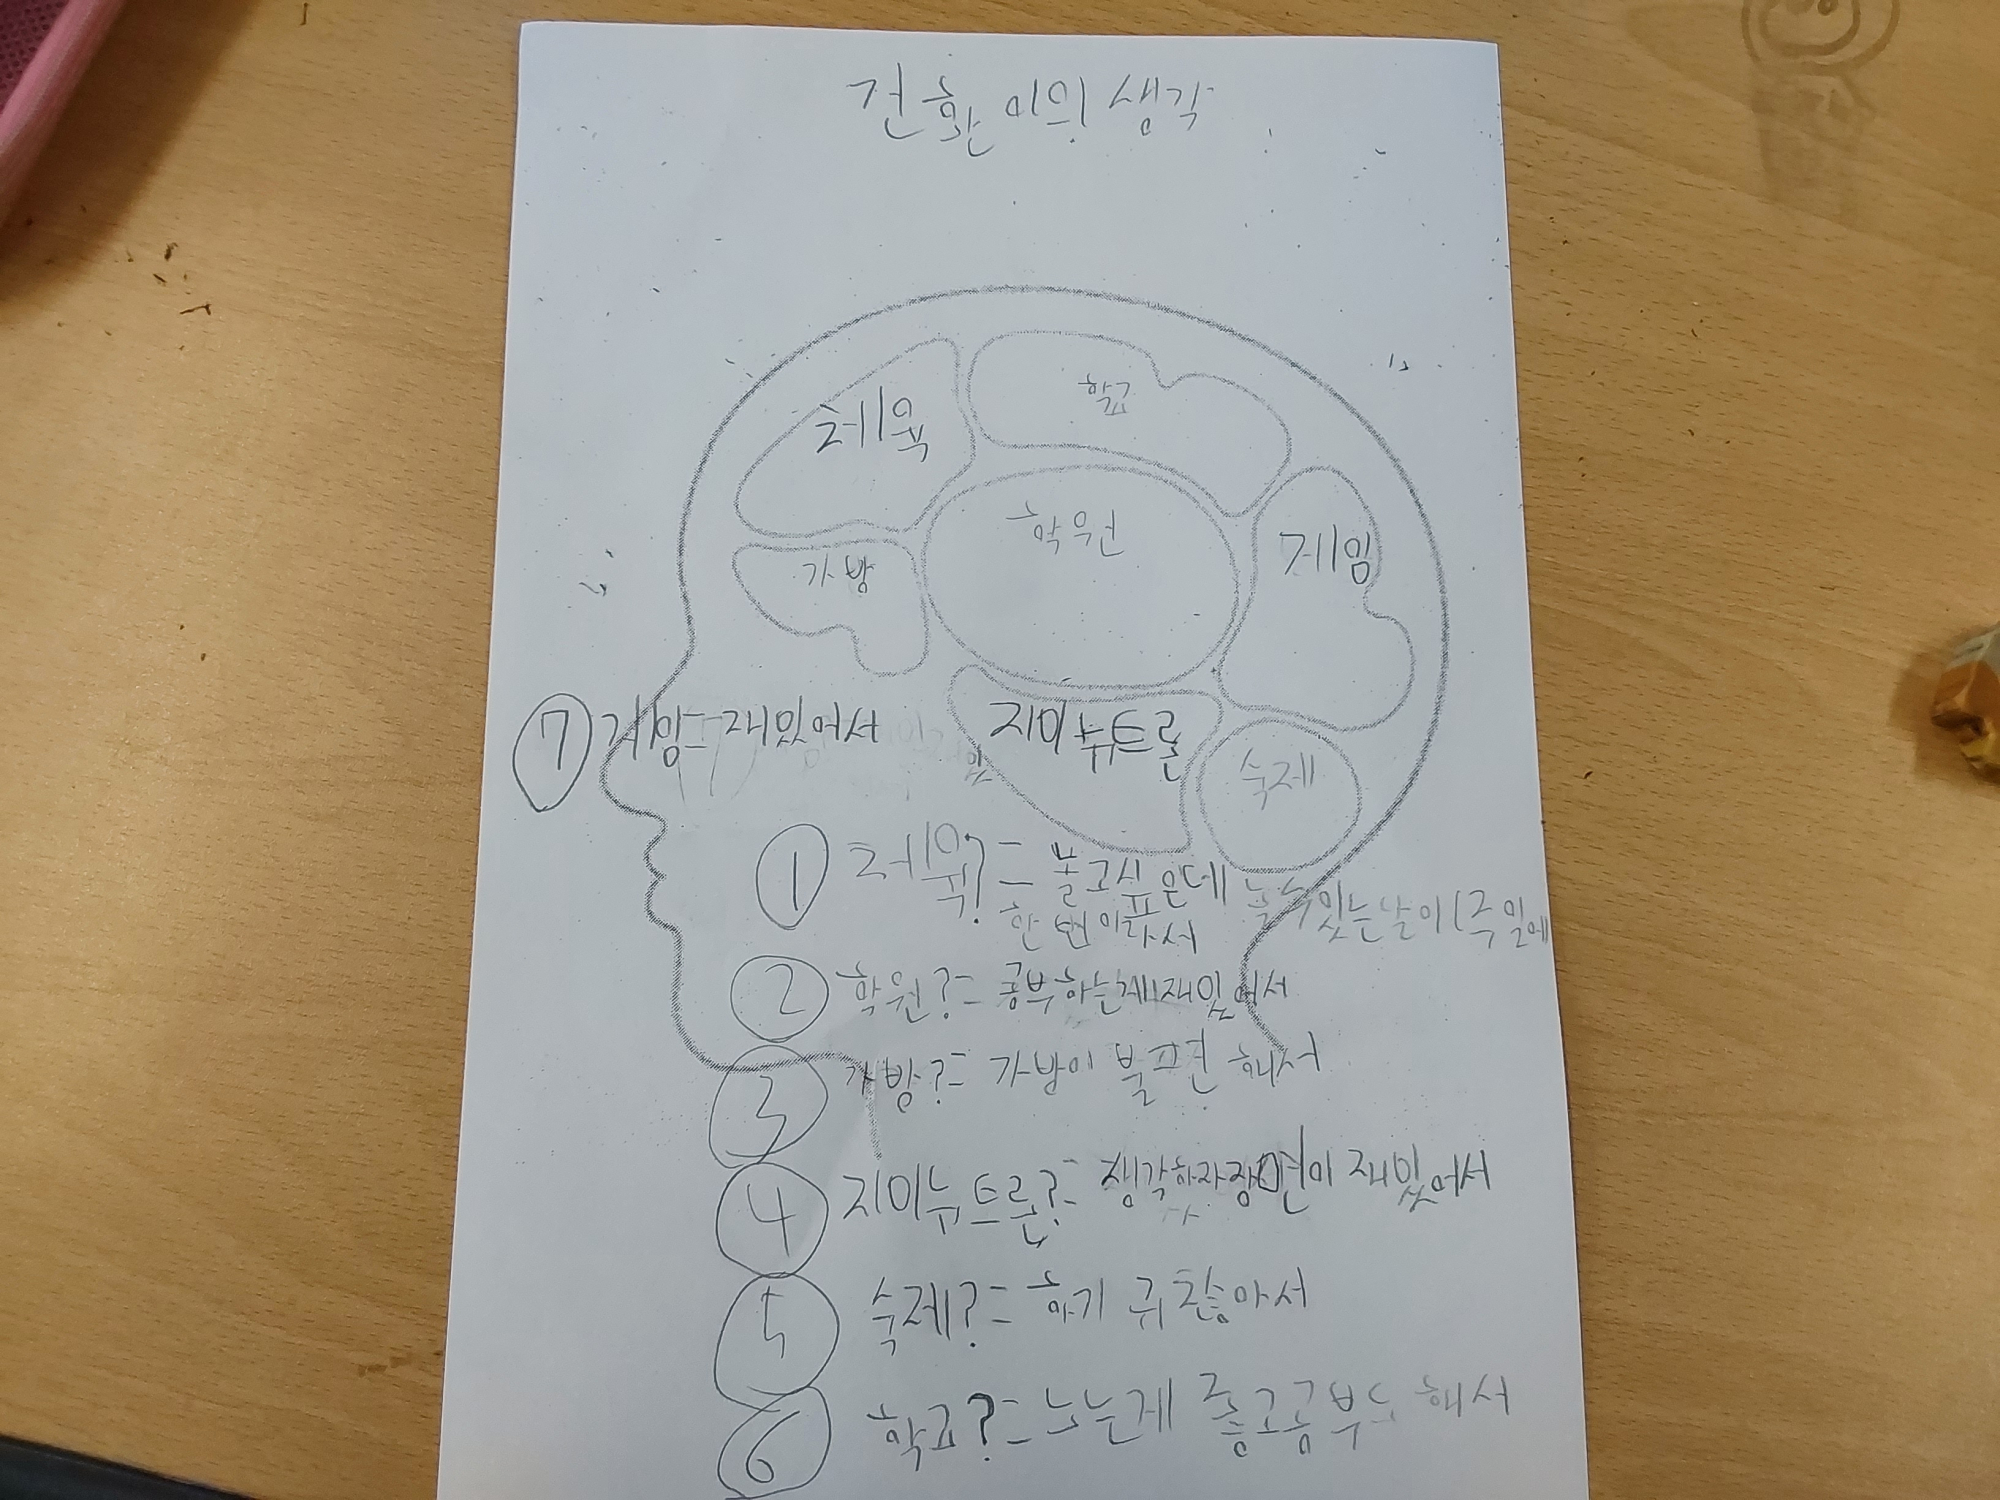 건환이의 생각
체육
학교
학원
게임
가방
지미뉴트론
숙제
⑦ 게임= 재밌어서
① 체육?= 놀고싶은데 놀수있는날이 1주일에
한번이라서
② 학원?= 공부하는게재밌어서
③ 가방?= 가방이 불편해서
④ 지미뉴트론?= 생각하자장면이 재밌어서
⑤ 숙제?= 하기 귀찮아서
⑥ 학교?= 노는게 좋고공부도 해서